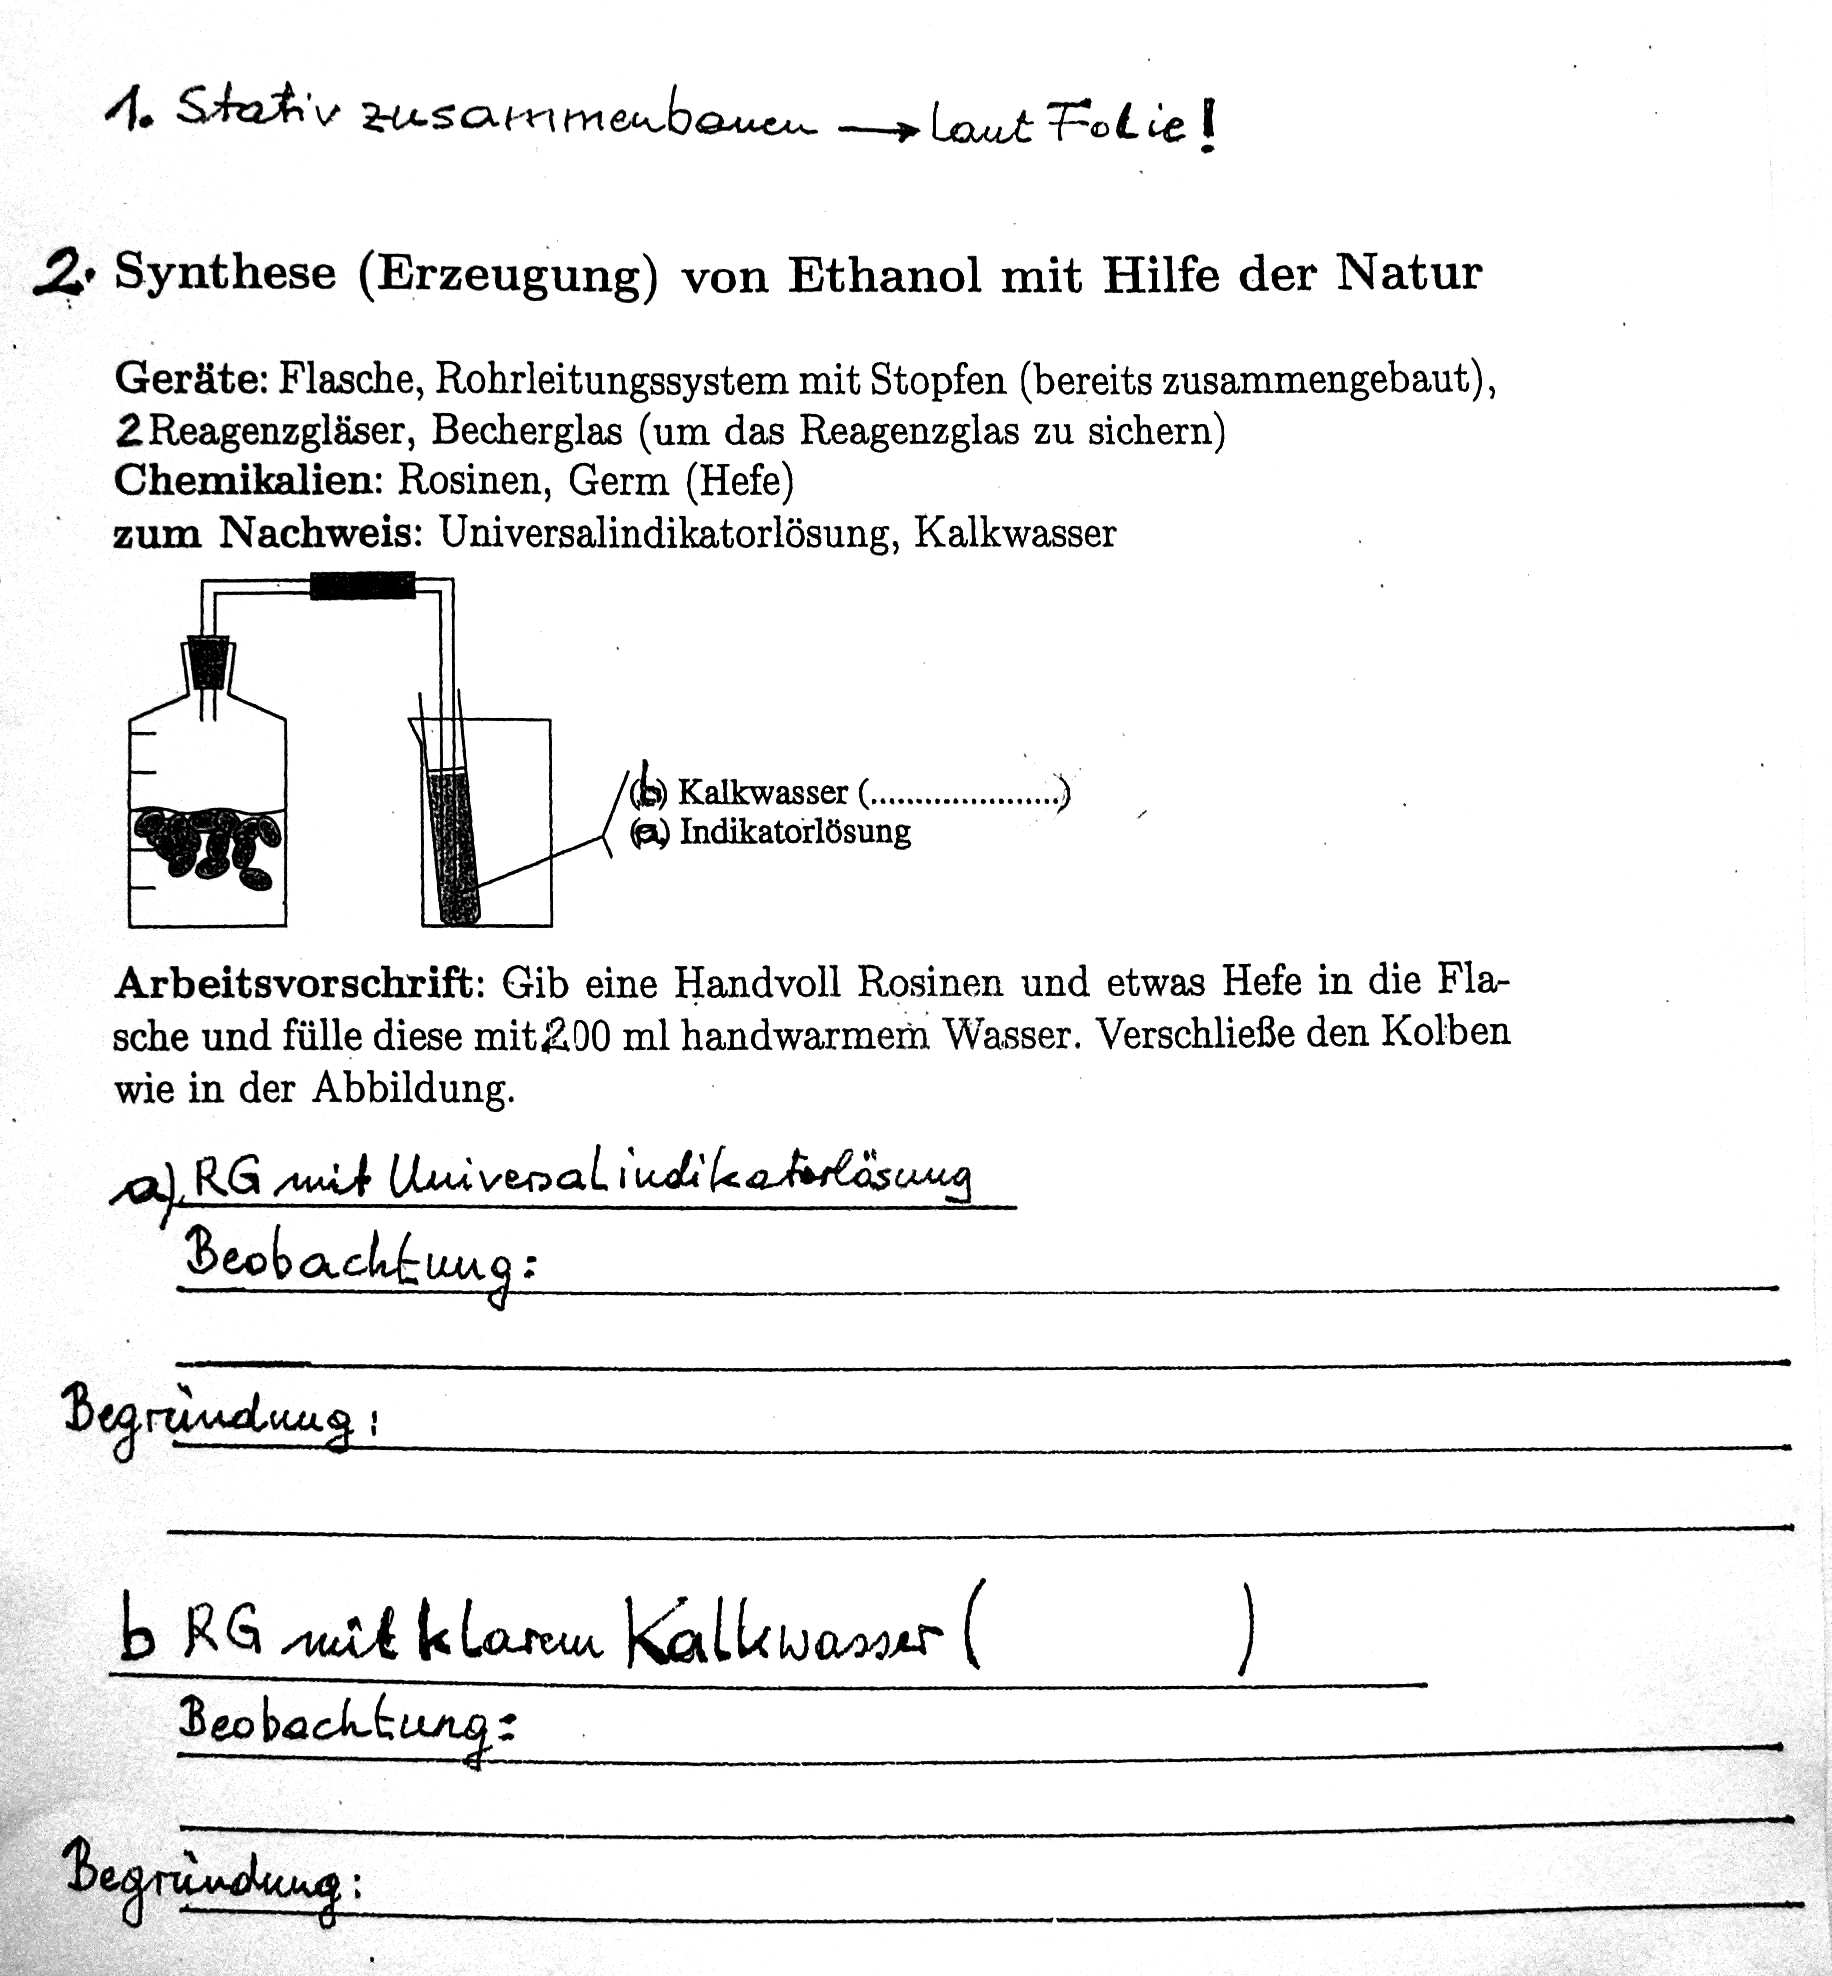 1. Stativ zusammenbauen → laut Folie!
2. Synthese (Erzeugung) von Ethanol mit Hilfe der Natur
Geräte: Flasche, Rohrleitungssystem mit Stopfen (bereits zusammengebaut),
2 Reagenzgläser, Becherglas (um das Reagenzglas zu sichern)
Chemikalien: Rosinen, Germ (Hefe)
zum Nachweis: Universalindikatorlösung, Kalkwasser
(b) Kalkwasser (.....................)
(a) Indikatorlösung
Arbeitsvorschrift: Gib eine Handvoll Rosinen und etwas Hefe in die Fla-
sche und fülle diese mit 200 ml handwarmem Wasser. Verschließe den Kolben
wie in der Abbildung.
a) RG mit Universalindikatorlösung
Beobachtung:
Begründung:
b RG mit klarem Kalkwasser ( )
Beobachtung:
Begründung: